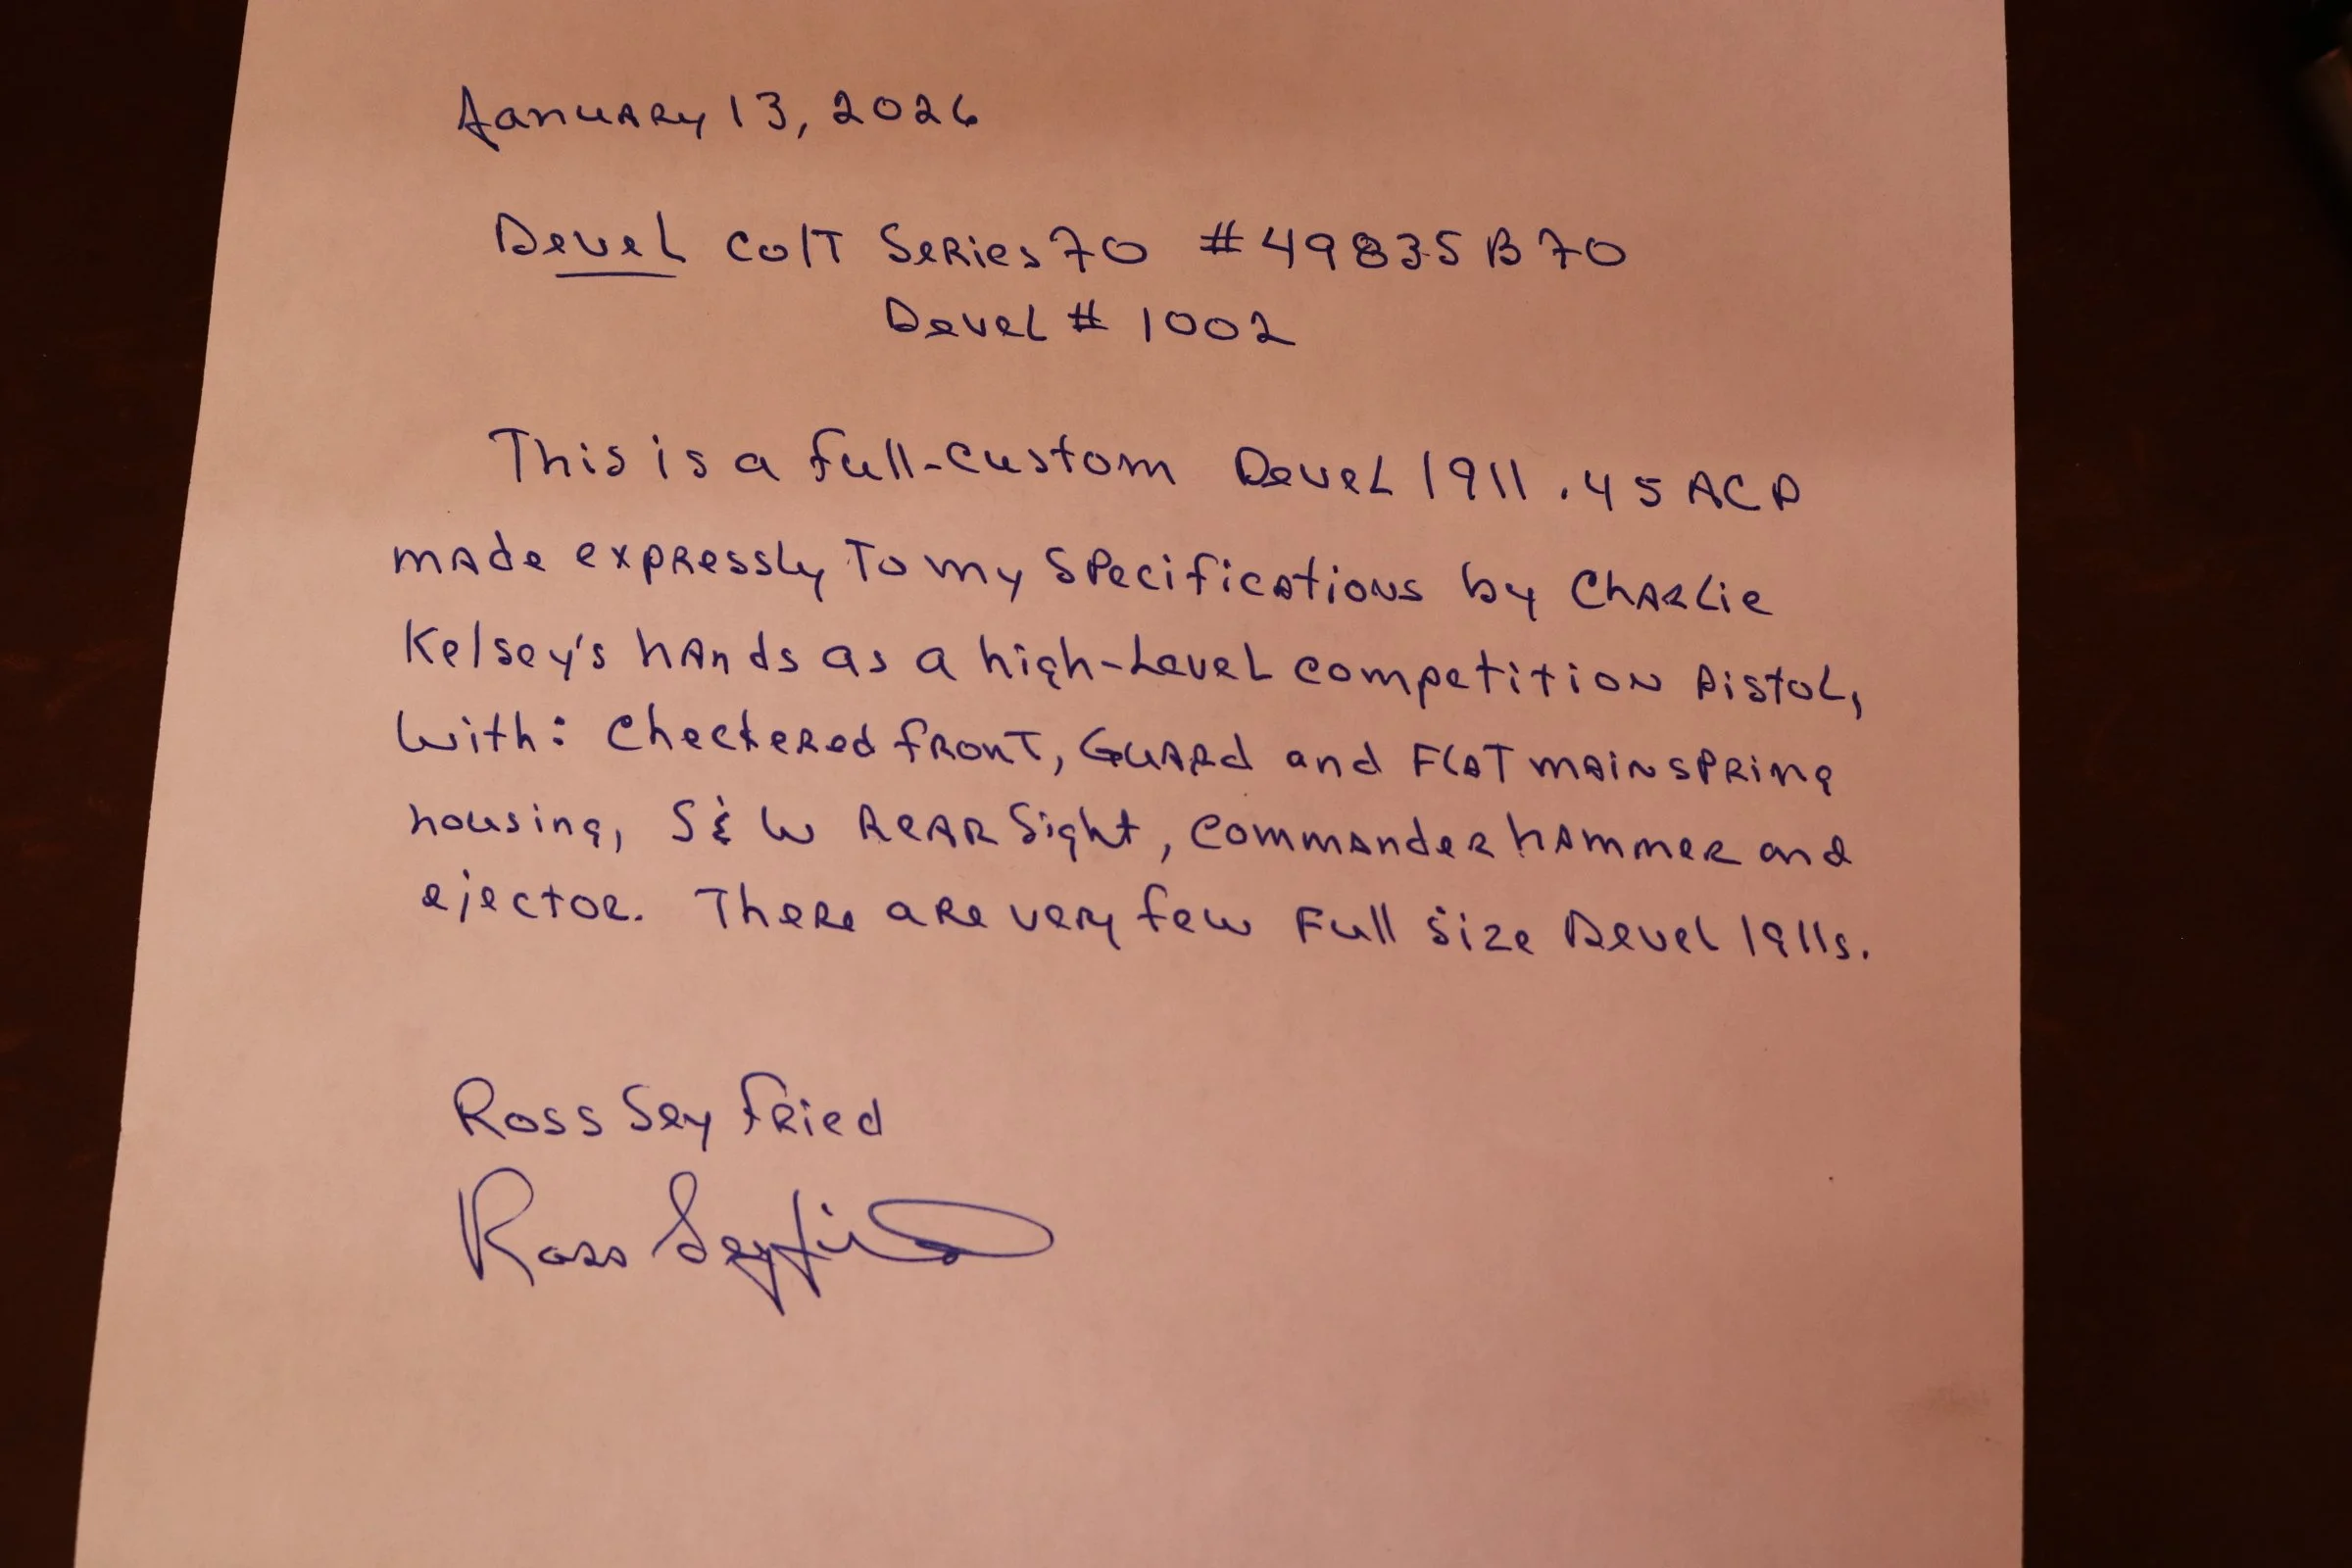 January 13, 2026
Devel Colt Series 70 #49835B70
Devel # 1002
This is a full-custom Devel 1911 .45 ACP
made expressly To my Specifications by Charlie
Kelsey's hands as a high-Level competition Pistol,
With: Checkered front, Guard and FLAT mainspring
housing, S&W Rear Sight, Commander hammer and
ejector. There are very few Full Size Devel 1911s.
Ross Seyfried
Ross Seyfried